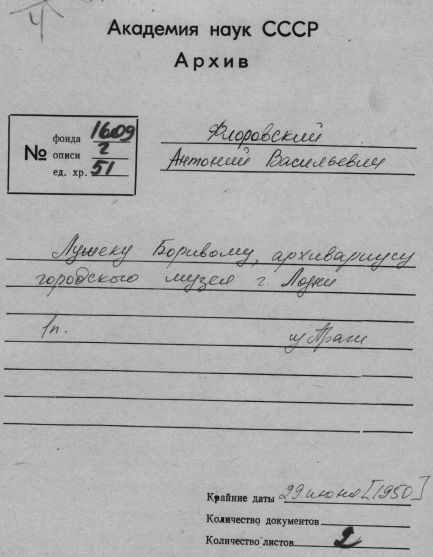 4
Академия наук СССР
Архив
№
фонда 1609
описи 2
ед. хр. 51
Флоровский
Антоний Васильевич
Лушеку Боривому, архивариусу
городского музея г. Лодни
1п. из Праги
Крайние даты 29 июня [1950]
Количество документов
Количество листов 2